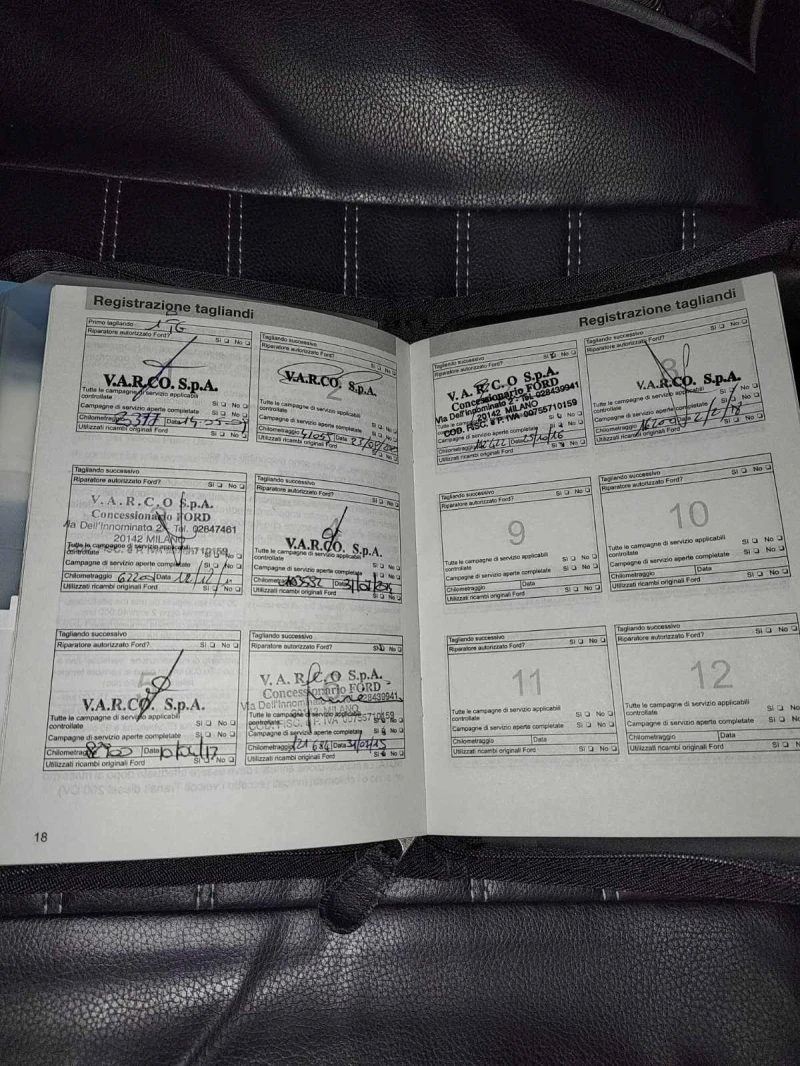 Registrazione tagliandi
Primo tagliando
Riparatore autorizzato Ford? Sì No
V.AR.CO. S.p.A.
Tutte le campagne di servizio applicabili
controllate Sì No
Campagne di servizio aperte completate Sì No
Chilometraggio Data
Utilizzati ricambi originali Ford Sì No
Tagliando successivo
Riparatore autorizzato Ford? Sì No
2
V.AR.CO. S.p.A.
Tutte le campagne di servizio applicabili
controllate Sì No
Campagne di servizio aperte completate Sì No
Chilometraggio Data
Utilizzati ricambi originali Ford Sì No
Tagliando successivo
Riparatore autorizzato Ford? Sì No
V.A.R.C.O S.p.A.
Concessionario FORD
Via Dell'Innominato 2 - Tel. 02647461
20142 MILANO
Campagne di servizio aperte completate Sì No
Chilometraggio 62200 Data
Utilizzati ricambi originali Ford Sì No
Tagliando successivo
Riparatore autorizzato Ford? Sì No
4
V.AR.CO. S.p.A.
Tutte le campagne di servizio applicabili
controllate Sì No
Campagne di servizio aperte completate Sì No
Chilometraggio Data
Utilizzati ricambi originali Ford Sì No
Tagliando successivo
Riparatore autorizzato Ford? Sì No
5
V.AR.CO. S.p.A.
Tutte le campagne di servizio applicabili
controllate Sì No
Campagne di servizio aperte completate Sì No
Chilometraggio Data
Utilizzati ricambi originali Ford Sì No
Tagliando successivo
Riparatore autorizzato Ford? Sì No
V.A.R.C.O S.p.A.
Concessionario FORD
Via Dell'Innominato 028439941
20142 MILANO
COD. FISC. e P. IVA 00755710159
Tutte le campagne di servizio applicabili
controllate Sì No
Campagne di servizio aperte completate Sì No
Chilometraggio 121684 Data 31/07/15
Utilizzati ricambi originali Ford Sì No
18
Registrazione tagliandi
Tagliando successivo
Riparatore autorizzato Ford? Sì No
V.A.R.C.O S.p.A.
Concessionario FORD
Via Dell'Innominato 2 - Tel. 028439941
20142 MILANO
COD. FISC. e P. IVA 00755710159
Campagne di servizio aperte completate Sì No
Chilometraggio Data 25/10/16
Utilizzati ricambi originali Ford Sì No
Tagliando successivo
Riparatore autorizzato Ford? Sì No
8
V.AR.CO. S.p.A.
Tutte le campagne di servizio applicabili
controllate Sì No
Campagne di servizio aperte completate Sì No
Chilometraggio
Utilizzati ricambi originali Ford Sì No
Tagliando successivo
Riparatore autorizzato Ford? Sì No
9
Tutte le campagne di servizio applicabili
controllate Sì No
Campagne di servizio aperte completate Sì No
Chilometraggio Data
Utilizzati ricambi originali Ford Sì No
Tagliando successivo
Riparatore autorizzato Ford? Sì No
10
Tutte le campagne di servizio applicabili
controllate Sì No
Campagne di servizio aperte completate Sì No
Chilometraggio Data
Utilizzati ricambi originali Ford Sì No
Tagliando successivo
Riparatore autorizzato Ford? Sì No
11
Tutte le campagne di servizio applicabili
controllate Sì No
Campagne di servizio aperte completate Sì No
Chilometraggio Data
Utilizzati ricambi originali Ford Sì No
Tagliando successivo
Riparatore autorizzato Ford? Sì No
12
Tutte le campagne di servizio applicabili
controllate Sì No
Campagne di servizio aperte completate Sì No
Chilometraggio Data
Utilizzati ricambi originali Ford Sì No